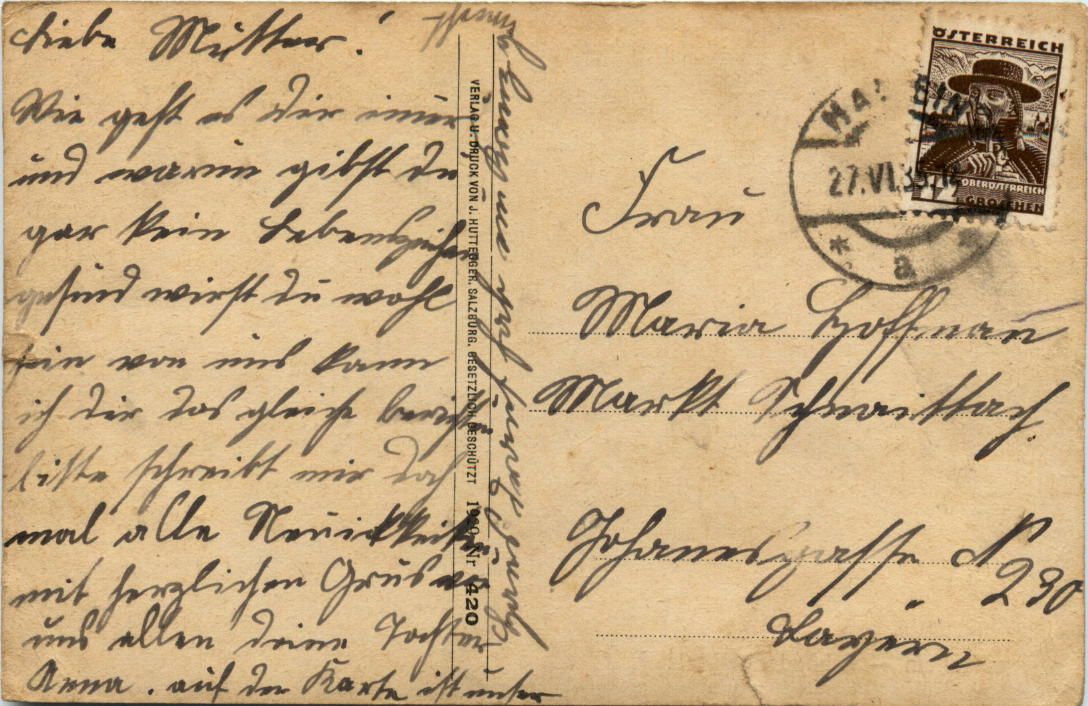 Liebe Mutter!
Wie geht es dir imer
und warum gibst du
gar kein Lebenszeichen
gesund wirst du wohl
sein von uns kann
ich dir das gleiche berichten
bitte schreibt mir doch
mal alle Neuikkeiten
mit herzlichen Grüs von
uns allen deine Tochter
Anna. auf der Karte ist unser
VERLAG U. DRUCK VON J. HUTTEGGER, SALZBURG. GESETZLICH GESCHÜTZT 1929 Nr 420
ÖSTERREICH
OBERÖSTERREICH
GROSCHEN
27.VI.35.14
* a *
Frau
Maria Hoffmann
Markt Schnaittach
Johanesgasse N
290
Bayern